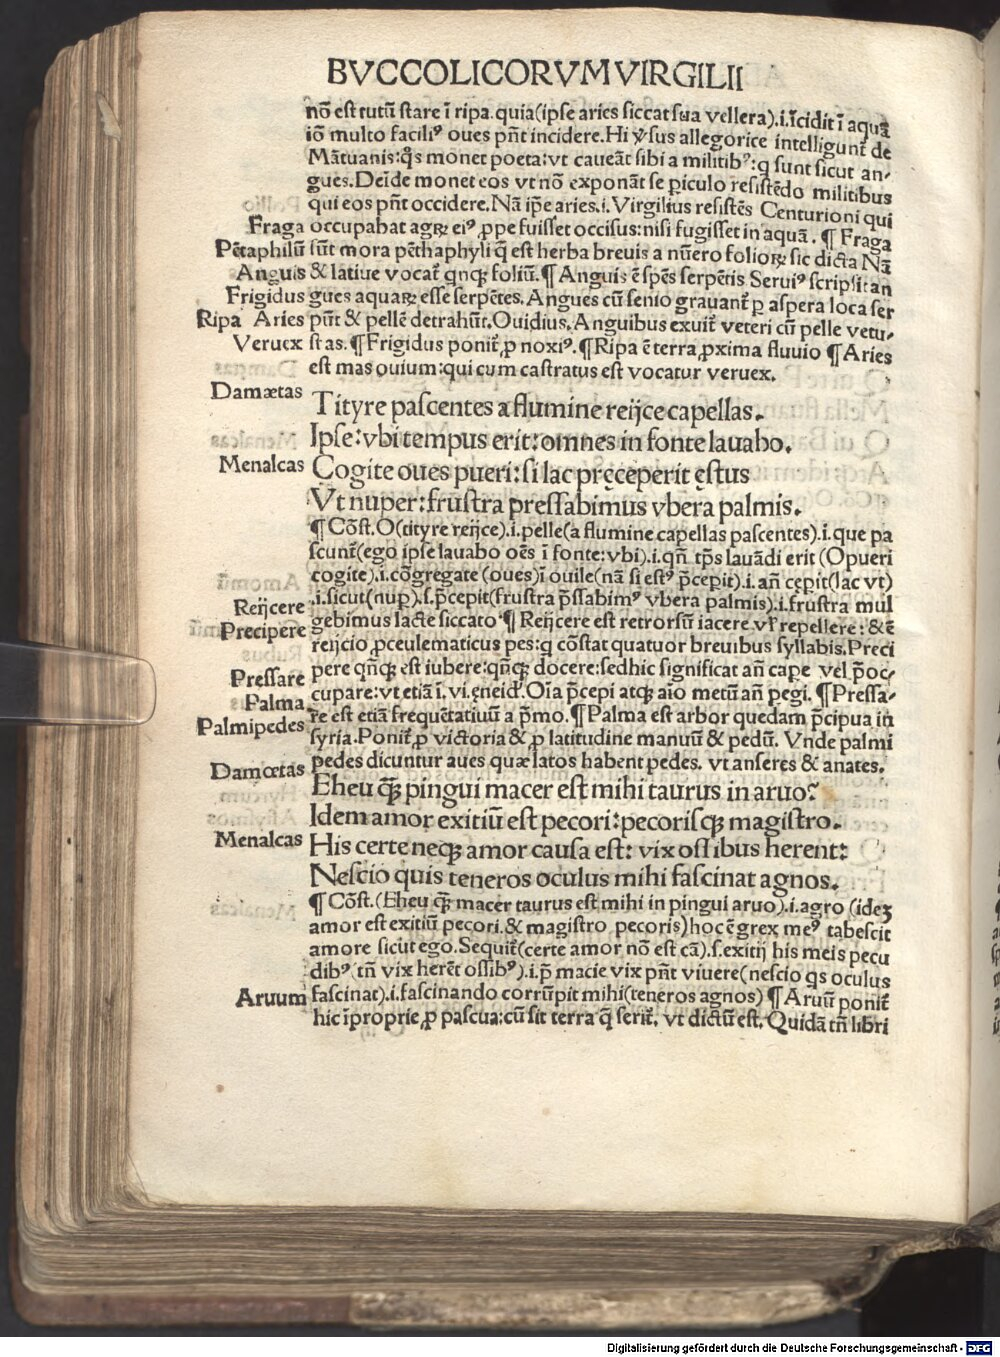 BVCCOLICORVM VIRGILII
nō est tutū stare ī ripa. quia(ipse aries siccat sua vellera).i.īcidit ī aquā
iō multo faciliꝰ oues pn̄t incidere. Hi ꝟsus allegorice intelligunt̄ de
Mātuanis: qͦs monet poeta: vt caueāt sibi a militibꝰ: q sunt sicut an⸗
gues. Deīde monet eos vt nō exponāt se ꝑiculo resistēdo militibus
qui eos pn̄t occidere. Nā ip̄e aries .i. Virgilius resistēs Centurioni qui
Fraga occupabat agꝝ eiꝰ, ꝓpe fuisset occisus: nisi fugisset in aquā. ¶ Fraga
Pētaphilū sūt mora pēthaphyli q̄ est herba breuis a nūero folioꝝ sic dicta Nā
Anguis & latiue vocat̄ qnqꝫ foliū. ¶ Anguis ē spēs serpētis Seruiꝰ scripsit an
Frigidus gues aquaꝝ esse serpētes. Angues cū senio grauant̄ ꝑ aspera loca ser
Ripa Aries pūt & pellē detrahūt. Ouidius. Anguibus exuit̄ veteri cū pelle vetu⸗
Veruex stas. ¶ Frigidus ponit̄ ꝓ noxiꝰ. ¶ Ripa ē terra ꝓxima fluuio ¶ Aries
est mas ouium: qui cum castratus est vocatur veruex.
Damætas Tityre pascentes a flumine reijce capellas.
Ipse: vbi tempus erit: omnes in fonte lauabo.
Menalcas Cogite oues pueri: si lac pręceperit ęstus
Vt nuper: frustra pressabimus vbera palmis.
¶ Cōst. O(tityre reijce).i. pelle(a flumine capellas pascentes).i. que pa
scunt̄(ego ipse lauabo oēs ī fonte: vbi).i. qn̄ tp̄s lauādi erit (O pueri
cogite).i. cōgregate (oues)ī ouile(nā si estꝰ p̄cepit).i. an̄ cępit(lac vt)
.i. sicut(nuꝑ).s. p̄cepit(frustra p̄ssabimꝰ vbera palmis).i. frustra mul
Reijcere gebimus lacte siccato ¶ Reijcere est retrorsū iacere vł repellere: & ē
Precipere reijcio ꝓceulematicus pes: q cōstat quatuor breuibus syllabis. Preci
pere qn̄qꝫ est iubere: qn̄qꝫ docere: sed hic significat an̄ cape vel p̄oc⸗
Pressare cupare: vt etiā ī. vi. ęneid. Oīa p̄cepi atqꝫ aīo metū an̄ pegi. ¶ Pressa⸗
Palma re est etiā frequētatiuū a p̄mo. ¶ Palma est arbor quedam p̄cipua in
Palmipedes syria. Ponit̄ ꝓ victoria & ꝓ latitudine manuū & pedū. Vnde palmi
pedes dicuntur aues quæ latos habent pedes. vt anseres & anates.
Damœtas Eheu q̄ꝫ pingui macer est mihi taurus in aruo?
Idem amor exitiū est pecori: pecorisqꝫ magistro.
Menalcas His certe neqꝫ amor causa est: vix ossibus herent:
Nescio quis teneros oculus mihi fascinat agnos.
¶ Cōst. (Eheu q̄ꝫ macer taurus est mihi in pingui aruo).i. agro (ideꝫ
amor est exitiū pecori. & magistro pecoris) hoc ē grex meꝰ tabescit
amore sicut ego. Sequit̄(certe amor nō est cā).s. exitij his meis pecu
dibꝰ (tn̄ vix herēt ossibꝰ).i. p̄ macie vix pn̄t viuere(nescio qs oculus
Aruum fascinat).i. fascinando corrūpit mihi(teneros agnos) ¶ Aruū ponit̄
hic īproprie, ꝓ pascua: cū sit terra q̄ serit̄. vt dictū est. Quidā tn̄ libri
Digitalisierung gefördert durch die Deutsche Forschungsgemeinschaft - DFG